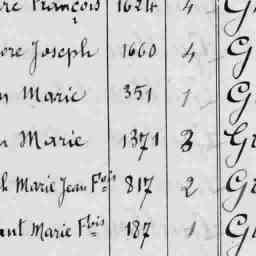 François 1624 4
Joseph 1660 4 G
Marie 351 1 G
Marie 1371 3 G
Marie Jean Fçois 817 2 G
Marie Fçois 187 1 G